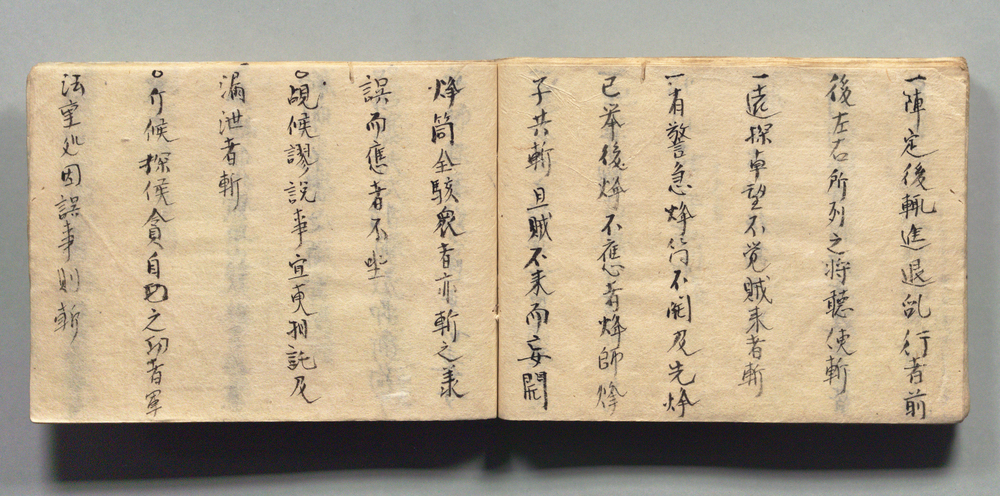 一陣定後輒進退乱行者前
後左右所列之将聽使斬
一遠探卓望不覚賊来者斬
一有警急烽筒不開及先烽
已举後烽不應者烽師烽
子共斬且賊不来而妄開
烽筒並駭衆者亦斬之其
誤而應者不坐
○覘候謬説事宜更相託及
漏泄者斬
○斥候探候貪自之功者軍
法重処因誤事則斬